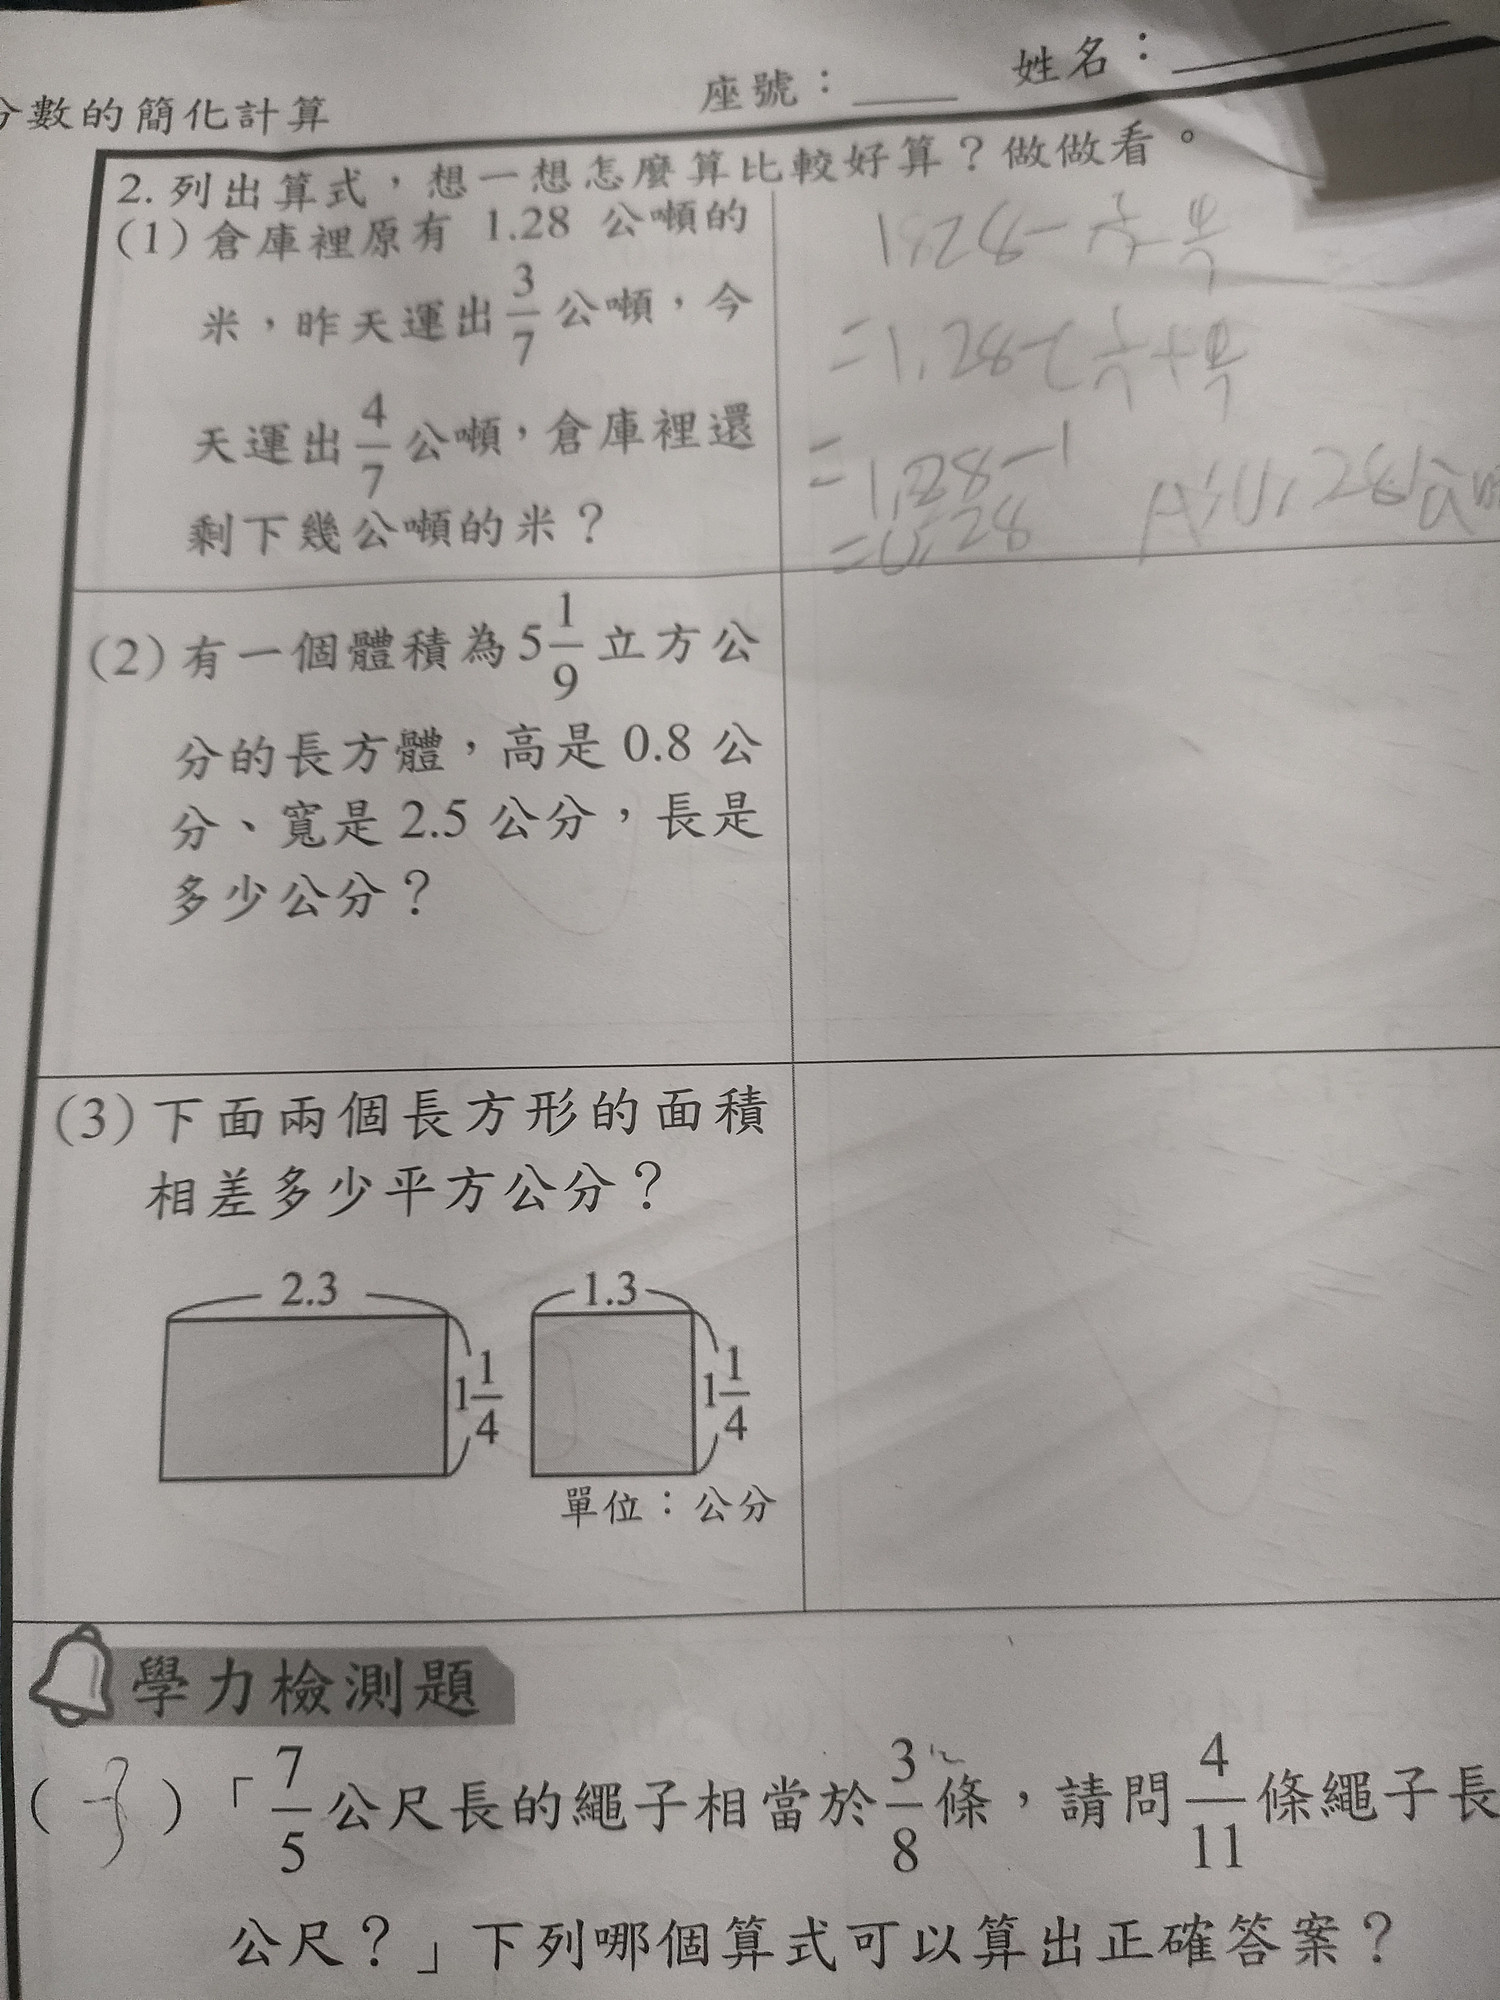 分數的簡化計算
座號：____ 姓名：____
2. 列出算式，想一想怎麼算比較好算？做做看。
(1) 倉庫裡原有 1.28 公噸的
米，昨天運出 3/7 公噸，今
天運出 4/7 公噸，倉庫裡還
剩下幾公噸的米？
=1.28-1
=0.28
(2) 有一個體積為 5 1/9 立方公
分的長方體，高是 0.8 公
分、寬是 2.5 公分，長是
多少公分？
(3) 下面兩個長方形的面積
相差多少平方公分？
2.3
1 1/4
1.3
1 1/4
單位：公分
學力檢測題
( 3 )「7/5 公尺長的繩子相當於 3/8 條，請問 4/11 條繩子長
公尺？」下列哪個算式可以算出正確答案？